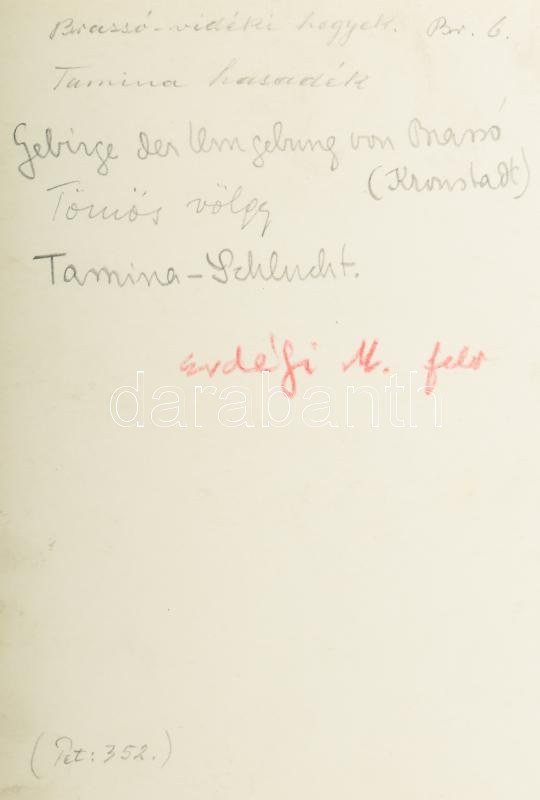 Brassó-vidéki hegyek. Br. 6.
Tamina hasadék
Gebirge der Umgebung von Brassó
(Kronstadt)
Tömös völgy
Tamina-Schlucht.
Erdélyi M. felv
darabanth
(Pet: 352.)